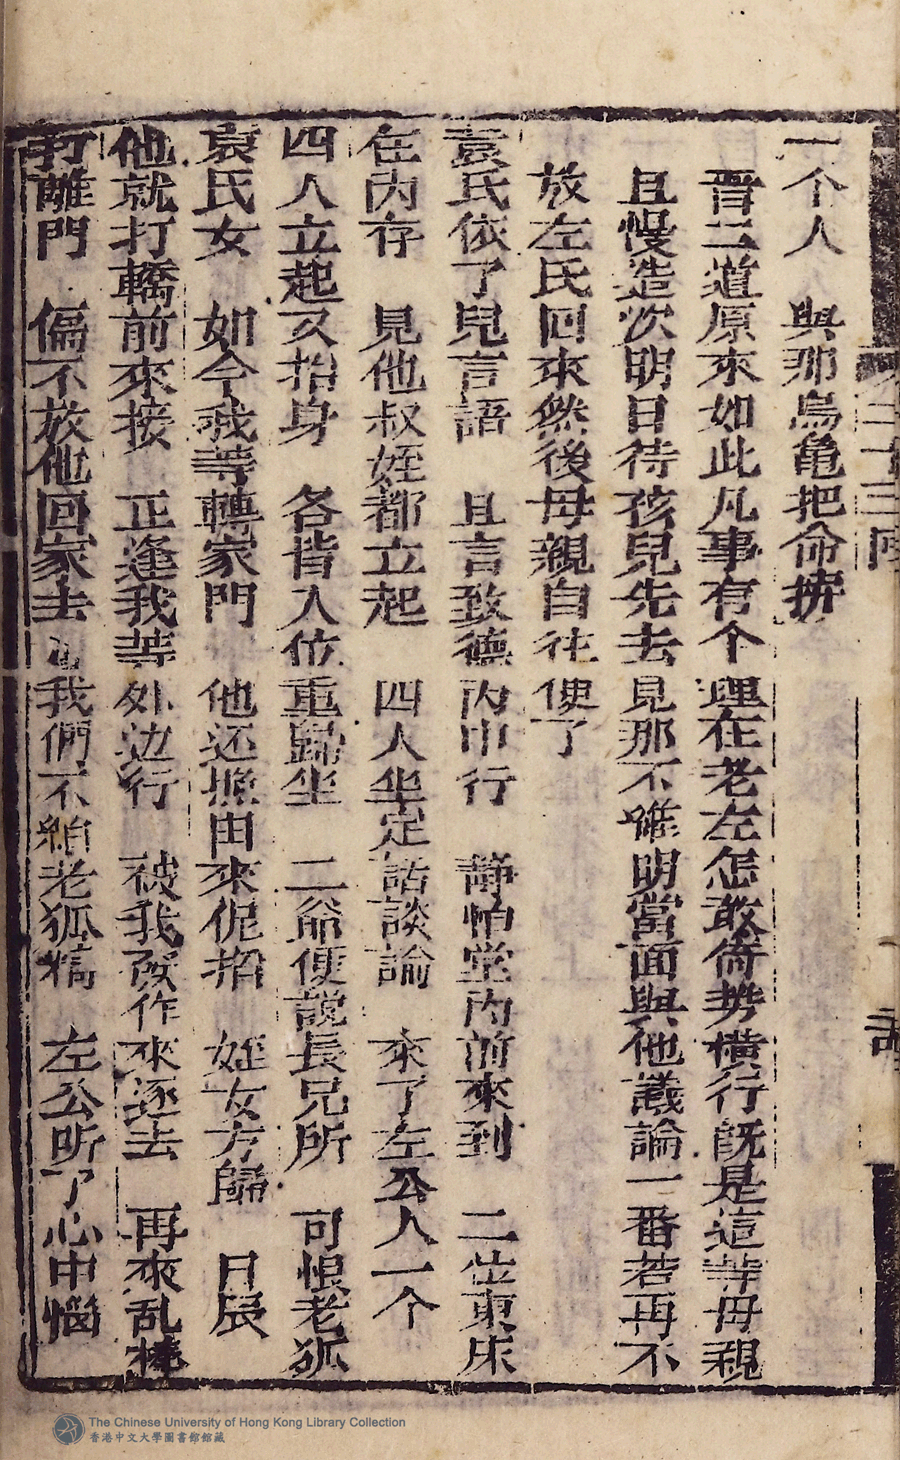 一个人　與那烏亀把命拚
晋二道原來如此凡事有个理在老左怎敢倚势橫行既是這等母親
且慢造次明日待孩兒先去見那不賢明當面與他議論一番若再不
放左氏回來然後母親自往便了
袁氏依了兒言語　且言致德內中行　静怕堂內前來到　二世東床
在內存　見他叔姪都立起　四人坐定話談論　來了左公人一个
四人立起又抬身　各皆入位重歸坐　二爺便説長兄所　可恨老狐
袁氏女　如今我等轉家門　他还撚由來伲招　姪女方歸　日辰
他就打轎前來接　正逢我等外边行　被我作來逐去　再來乱棒
打離門　偏不放他回家去　我們不怕老狐　左公听了心中惱
三十三
The Chinese University of Hong Kong Library Collection
香港中文大學圖書館館藏